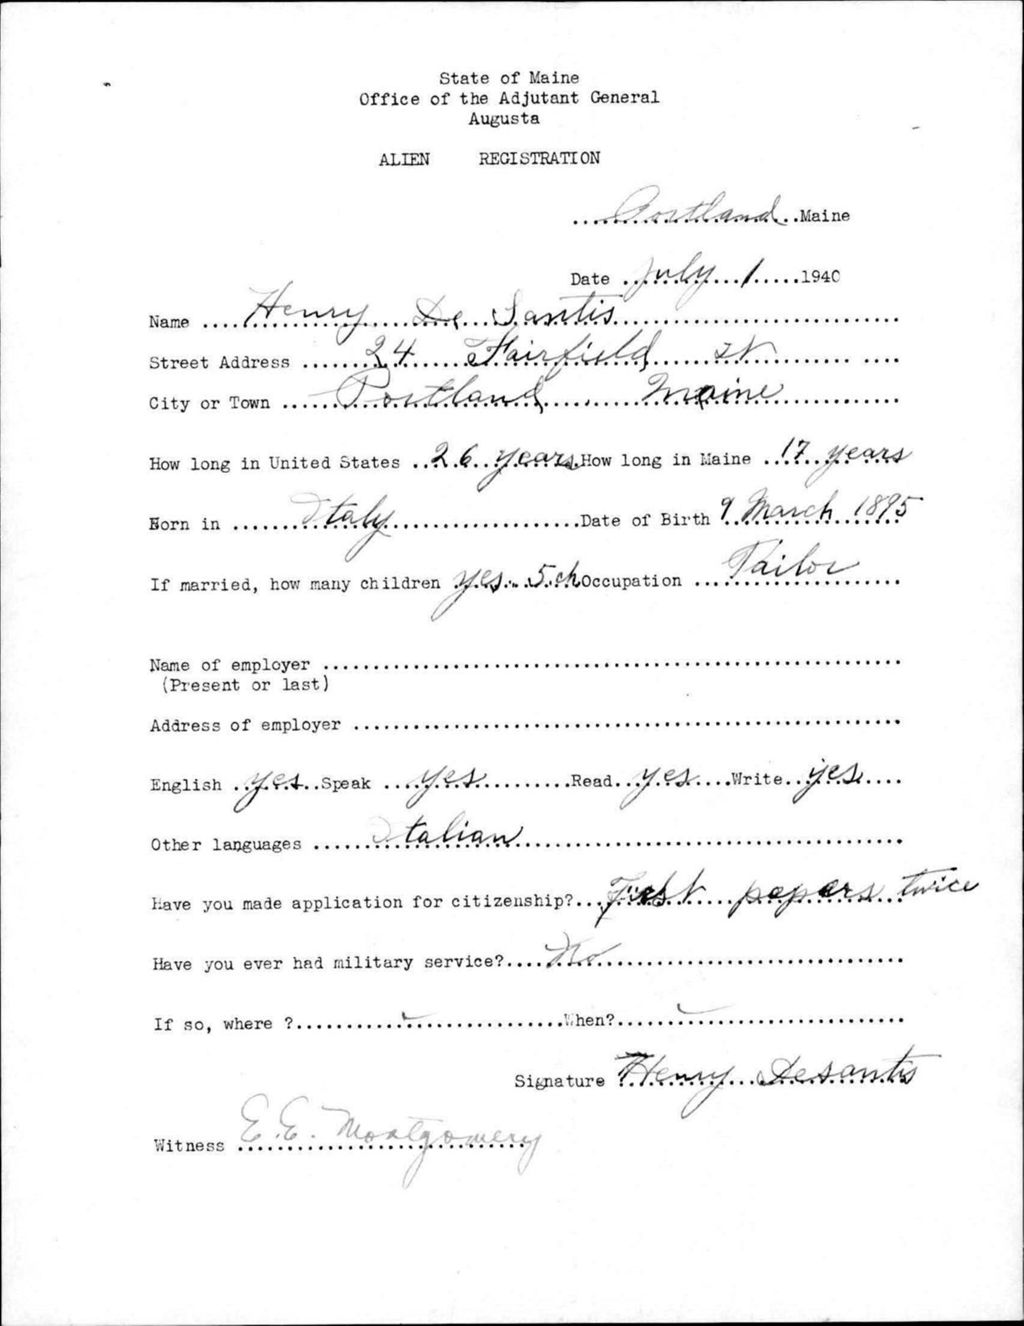 State of Maine
Office of the Adjutant General
Augusta
ALIEN REGISTRATION
Portland Maine
Date July 1 1940
Name Henry De Santis
Street Address 24 Fairfield St
City or Town Portland Maine
How long in United States 26 years How long in Maine 17 years
Born in Italy Date of Birth 9 March 1895
If married, how many children yes 5 ch Occupation Tailor
Name of employer
(Present or last)
Address of employer
English yes Speak yes Read yes Write yes
Other languages Italian
Have you made application for citizenship? First papers twice
Have you ever had military service? No
If so, where ? When?
Signature Henry Desantis
Witness E. E. Montgomery